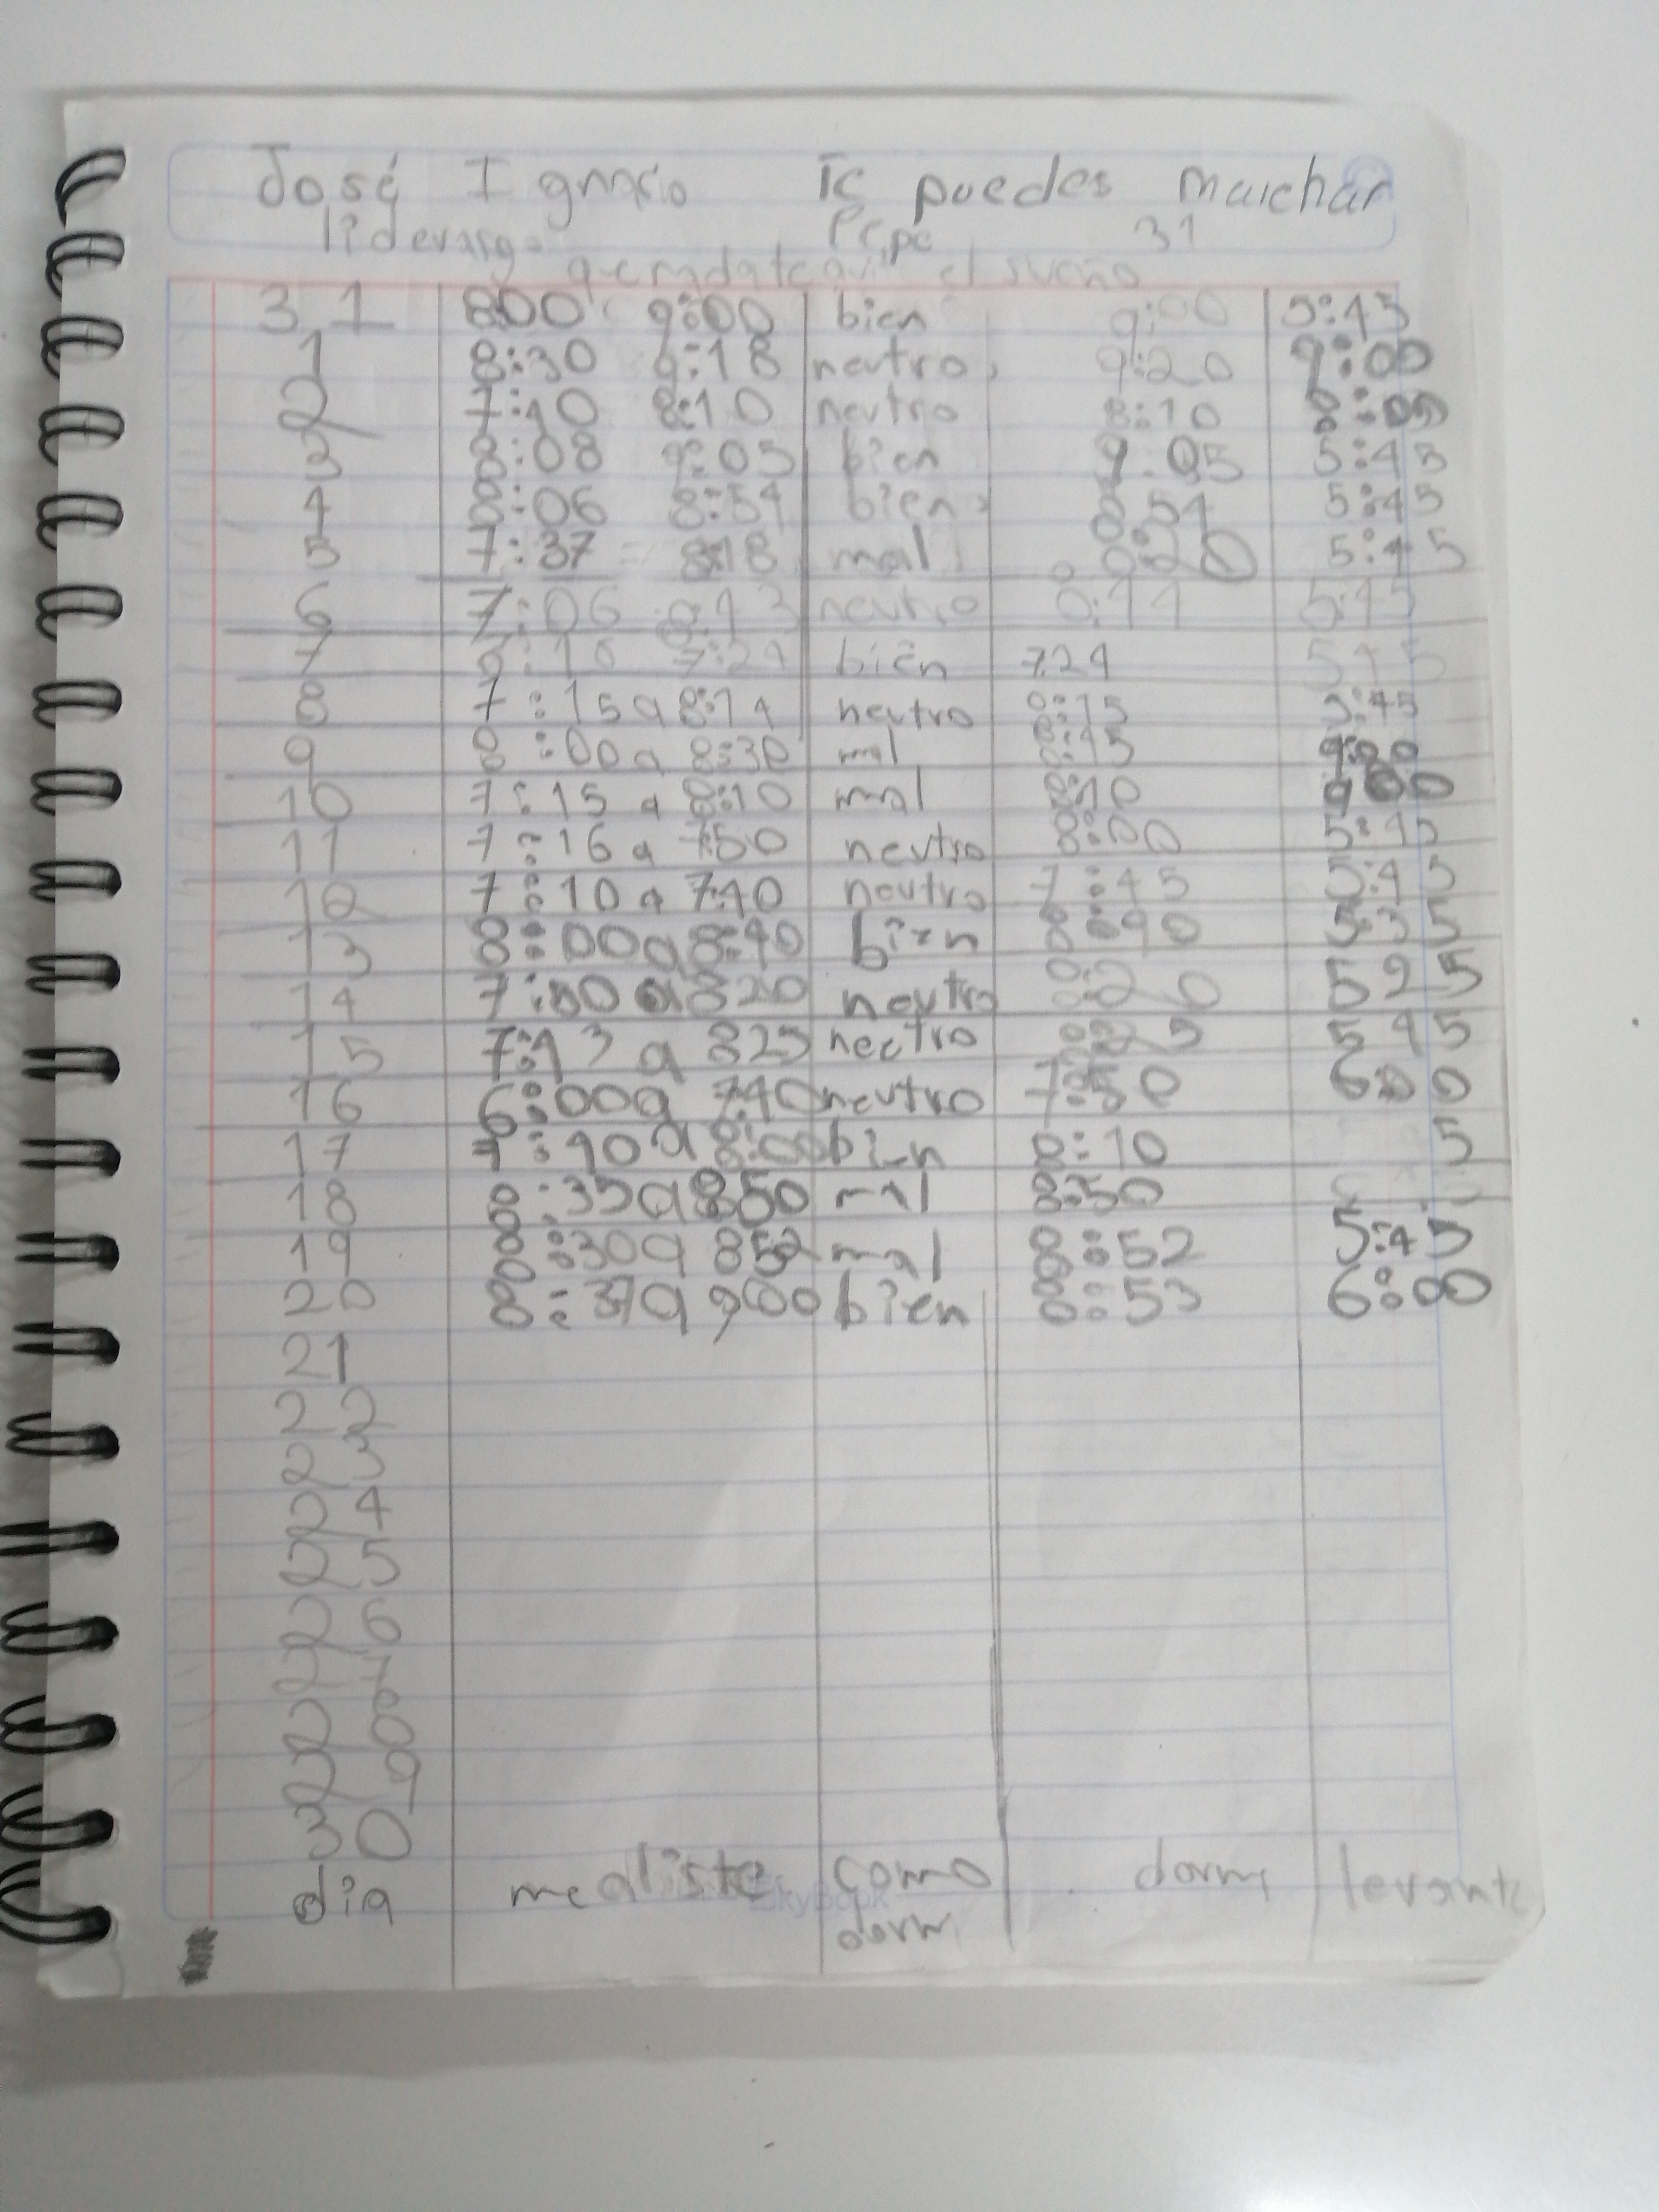 José Ignacio Te puedes marchar
Pepe 31
el sueño
31 8:00 9:00 bien 9:00 5:45
1 8:30 9:18 neutro, 9:20 9:00
2 7:10 8:10 neutro 8:10
3 8:08 9:05 bien 9:05 5:45
4 8:06 8:54 bien 8:54 5:45
5 7:37 8:18 mal 8:20 5:45
6 7:06 neutro 5:45
7 7:24 bien 7:24 545
8 7:15 a 8:14 neutro 8:15 5:45
9 8:00 a 8:30 mal
10 7:15 a 8:10 mal 8:10 9:00
11 7:16 a 7:50 neutro 8:00 5:45
12 7:10 a 7:40 neutro 7:45 5:45
13 8:00 a 8:40 bien 8:40 5:35
14 a 820 neutro 8:20 525
15 a 825 neutro 545
16 6:00 a 7:40 neutro 7:50 6:00
17 a 8:00 8:10 5
18 8:35 a 850 mal 8:50
19 8:30 a 852 mal 8:52 5:45
20 a 900 bien 8:53 6:00
21
22
23
24
25
26
27
28
29
30
dia me aliste como dorm dormi levante